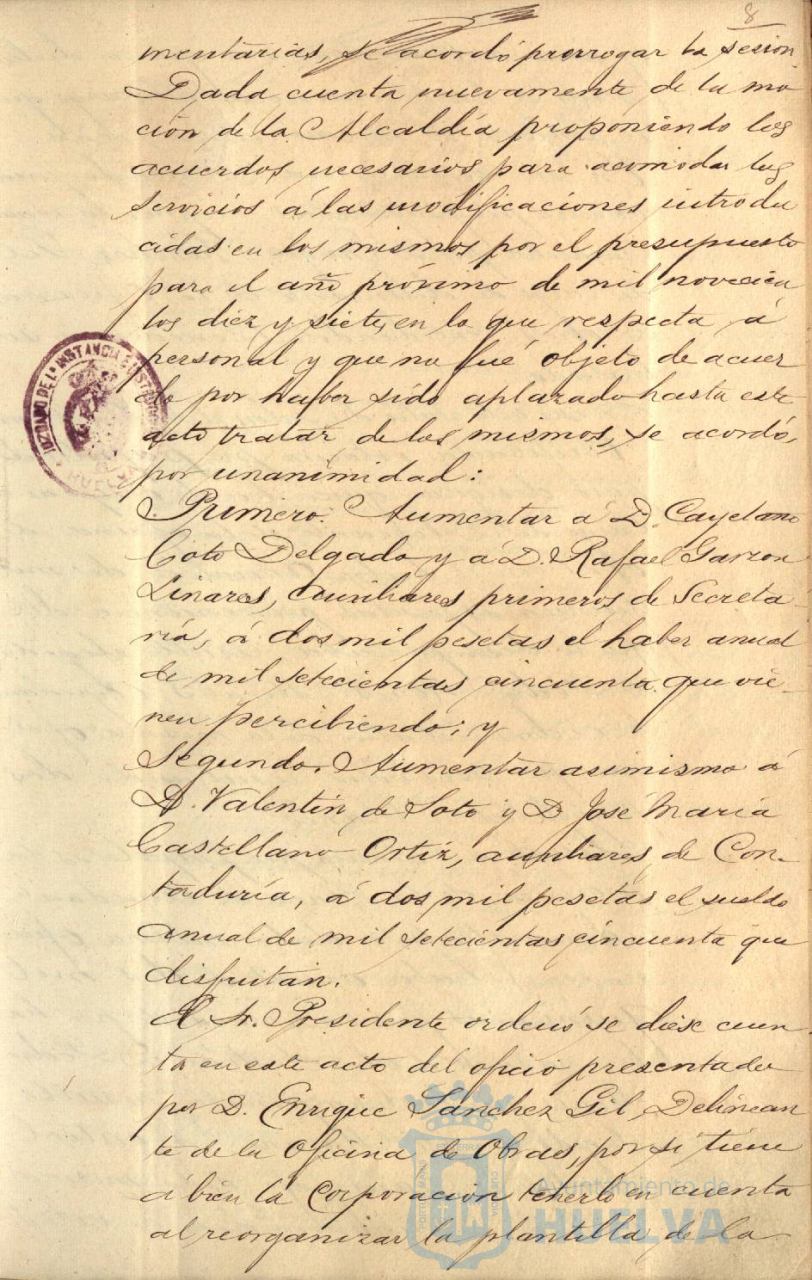 8
mentarias, se acordó prorrogar la sesión.
Dada cuenta nuevamente de la mo
ción de la Alcaldía proponiendo los
acuerdos necesarios para acomodar los
servicios á las modificaciones introdu
cidas en los mismos por el presupuesto
para el año próximo de mil novecien
tos diez y siete, en lo que respecta á
personal y que no fué objeto de acuer
do por haber sido aplazado hasta este
acto tratar de los mismos, se acordó,
por unanimidad:
Primero. Aumentar á D. Cayetano
Coto Delgado y á D. Rafael Garzon
Linares, auxiliares primeros de Secreta
ría, á dos mil pesetas el haber anual
de mil setecientas cincuenta que vie-
nen percibiendo; y
Segundo. Aumentar asimismo á
D. Valentín de Soto y D José María
Castellano Ortíz, auxiliares de Con-
taduría, á dos mil pesetas el sueldo
anual de mil setecientas cincuenta que
disfrutan.
El Sr. Presidente ordenó se diese cuen
ta en este acto del oficio presentado
por D. Enrique Sánchez Gil, Delinean
te de la Oficina de Obras, por si tiene
á bien la Corporación tenerlo en cuenta
al reorganizar la plantilla de la
JUZGADO DE 1ª INSTANCIA É INSTRUCCIÓN
HUELVA
Ayuntamiento de
HUELVA